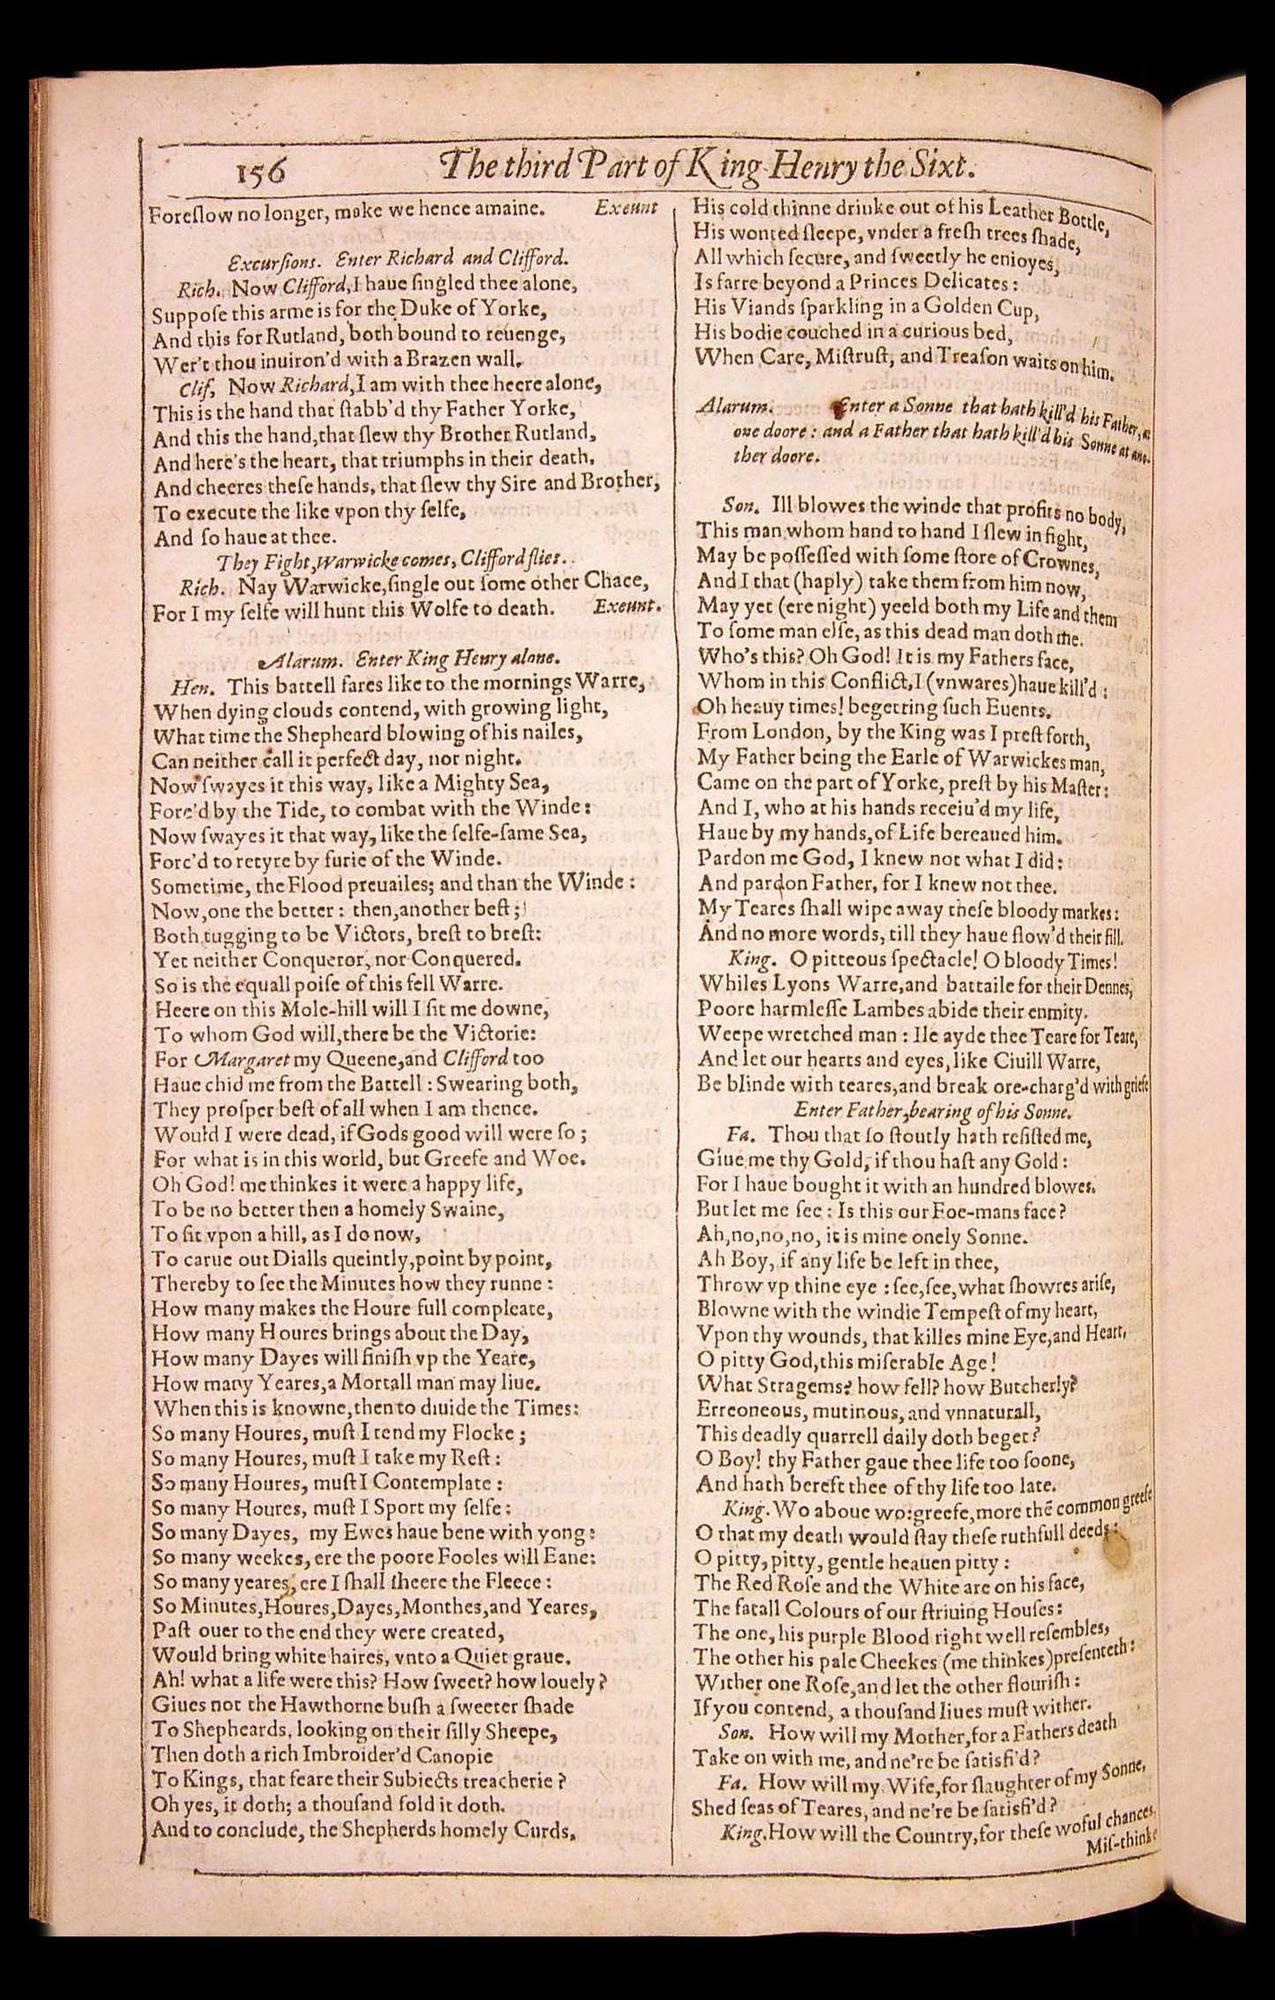 156
The third Part of King Henry the Sixt.
Foreſlow no longer, make we hence amaine. Exeunt
Excurſions. Enter Richard and Clifford.
Rich. Now Clifford, I haue ſingled thee alone,
Suppoſe this arme is for the Duke of Yorke,
And this for Rutland, both bound to reuenge,
Wer't thou inuiron'd with a Brazen wall.
Clif. Now Richard, I am with thee heere alone,
This is the hand that ſtabb'd thy Father Yorke,
And this the hand, that ſlew thy Brother Rutland,
And here's the heart, that triumphs in their death,
And cheeres theſe hands, that ſlew thy Sire and Brother,
To execute the like vpon thy ſelfe,
And ſo haue at thee.
They Fight, Warwicke comes, Clifford flies.
Rich. Nay Warwicke, ſingle out ſome other Chace,
For I my ſelfe will hunt this Wolfe to death. Exeunt.
Alarum. Enter King Henry alone.
Hen. This battell fares like to the mornings Warre,
When dying clouds contend, with growing light,
What time the Shepheard blowing of his nailes,
Can neither call it perfect day, nor night.
Now ſwayes it this way, like a Mighty Sea,
Forc'd by the Tide, to combat with the Winde:
Now ſwayes it that way, like the ſelfe-ſame Sea,
Forc'd to retyre by furie of the Winde.
Sometime, the Flood preuailes; and than the Winde:
Now, one the better: then, another beſt;
Both tugging to be Victors, breſt to breſt:
Yet neither Conqueror, nor Conquered.
So is the equall poiſe of this fell Warre.
Heere on this Mole-hill will I ſit me downe,
To whom God will, there be the Victorie:
For Margaret my Queene, and Clifford too
Haue chid me from the Battell: Swearing both,
They proſper beſt of all when I am thence.
Would I were dead, if Gods good will were ſo;
For what is in this world, but Greefe and Woe.
Oh God! me thinkes it were a happy life,
To be no better then a homely Swaine,
To ſit vpon a hill, as I do now,
To carue out Dialls queintly, point by point,
Thereby to ſee the Minutes how they runne:
How many makes the Houre full compleate,
How many Houres brings about the Day,
How many Dayes will finiſh vp the Yeare,
How many Yeares, a Mortall man may liue.
When this is knowne, then to diuide the Times:
So many Houres, muſt I tend my Flocke;
So many Houres, muſt I take my Reſt:
So many Houres, muſt I Contemplate:
So many Houres, muſt I Sport my ſelfe:
So many Dayes, my Ewes haue bene with yong:
So many weekes, ere the poore Fooles will Eane:
So many yeares, ere I ſhall ſheere the Fleece:
So Minutes, Houres, Dayes, Monthes, and Yeares,
Paſt ouer to the end they were created,
Would bring white haires, vnto a Quiet graue.
Ah! what a life were this? How ſweet? how louely?
Giues not the Hawthorne buſh a ſweeter ſhade
To Shepheards, looking on their ſilly Sheepe,
Then doth a rich Imbroider'd Canopie
To Kings, that feare their Subiects treacherie?
Oh yes, it doth; a thouſand fold it doth.
And to conclude, the Shepherds homely Curds,
His cold thinne drinke out of his Leather Bottle,
His wonted ſleepe, vnder a freſh trees ſhade,
All which ſecure, and ſweetly he enioyes,
Is farre beyond a Princes Delicates:
His Viands ſparkling in a Golden Cup,
His bodie couched in a curious bed,
When Care, Miſtruſt, and Treaſon waits on him.
Alarum. Enter a Sonne that hath kill'd his Father, at
one doore: and a Father that hath kill'd his Sonne at ano-
ther doore.
Son. Ill blowes the winde that profits no body,
This man whom hand to hand I ſlew in fight,
May be poſſeſſed with ſome ſtore of Crownes,
And I that (haply) take them from him now,
May yet (ere night) yeeld both my Life and them
To ſome man elſe, as this dead man doth me.
Who's this? Oh God! It is my Fathers face,
Whom in this Conflict, I (vnwares) haue kill'd:
Oh heauy times! begetting ſuch Euents.
From London, by the King was I preſt forth,
My Father being the Earle of Warwickes man,
Came on the part of Yorke, preſt by his Maſter:
And I, who at his hands receiu'd my life,
Haue by my hands, of Life bereaued him.
Pardon me God, I knew not what I did:
And pardon Father, for I knew not thee.
My Teares ſhall wipe away theſe bloody markes:
And no more words, till they haue flow'd their fill.
King. O pitteous ſpectacle! O bloody Times!
Whiles Lyons Warre, and battaile for their Dennes,
Poore harmleſſe Lambes abide their enmity.
Weepe wretched man: Ile ayde thee Teare for Teare,
And let our hearts and eyes, like Ciuill Warre,
Be blinde with teares, and break ore-charg'd with griefe
Enter Father, bearing of his Sonne.
Fa. Thou that ſo ſtoutly hath reſiſted me,
Giue me thy Gold, if thou haſt any Gold:
For I haue bought it with an hundred blowes.
But let me ſee: Is this our Foe-mans face?
Ah, no, no, no, it is mine onely Sonne.
Ah Boy, if any life be left in thee,
Throw vp thine eye: ſee, ſee, what ſhowres ariſe,
Blowne with the windie Tempeſt of my heart,
Vpon thy wounds, that killes mine Eye, and Heart.
O pitty God, this miſerable Age!
What Stragems? how fell? how Butcherly?
Erreoneous, mutinous, and vnnaturall,
This deadly quarrell daily doth beget?
O Boy! thy Father gaue thee life too ſoone,
And hath bereft thee of thy life too late.
King. Wo aboue wo: greefe, more thẽ common greefe
O that my death would ſtay theſe ruthfull deeds:
O pitty, pitty, gentle heauen pitty:
The Red Roſe and the White are on his face,
The fatall Colours of our ſtriuing Houſes:
The one, his purple Blood right well reſembles,
The other his pale Cheekes (me thinkes) preſenteth:
Wither one Roſe, and let the other flouriſh:
If you contend, a thouſand liues muſt wither.
Son. How will my Mother, for a Fathers death
Take on with me, and ne're be ſatisfi'd?
Fa. How will my Wife, for ſlaughter of my Sonne,
Shed ſeas of Teares, and ne're be ſatisfi'd?
King. How will the Country, for theſe woful chances,
Miſ-thinke